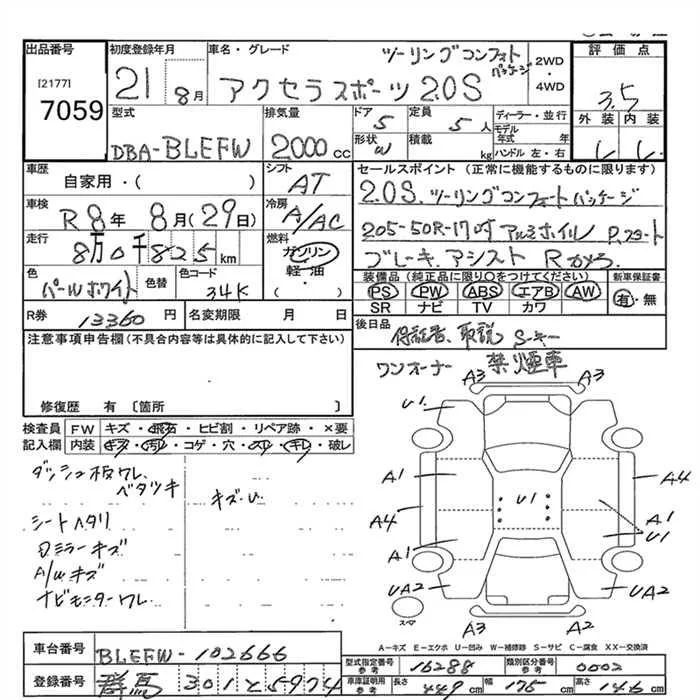 出品番号
[2177]
7059
初度登録年月
21 8月
車名・グレード
ツーリングコンフォートパッケージ
アクセラスポーツ 2.0S
2WD
・
4WD
評価点
3.5
外装 内装
型式
DBA-BLEFW
排気量
2000cc
ドア 5
形状 W
定員 5人
積載 kg
ディーラー・並行
モデル年式 年
ハンドル 左・右
車歴
自家用・( )
シフト
AT
セールスポイント(正常に機能するものに限ります)
2.0S. ツーリングコンフォートパッケージ
205-50R-17吋 アルミホイル P.スタート
ブレーキ.アシスト Rカメラ.
車検
R8年 8月(29日)
冷房
A/AC
走行
8万0千825km
燃料
ガソリン
・
軽・油
・
( )
色
パールホワイト
色替
色コード
34K
装備品(純正品に限り○をつけてください)
PS PW ABS エアB AW
SR ナビ TV カワ
新車保証書
有・無
R券 13360円
名変期限 月 日
後日品
保証書、取説 Sキー
ワンオーナー 禁煙車
注意事項申告欄(不具合内容等は具体的に記入して下さい)
修復歴 有〔箇所 〕
検査員記入欄
FW キズ・飛石・ヒビ割・リペア跡・×要
内装 キズ・汚れ・コゲ・穴・スレ・キレ・破レ
ダッシュ板ワレ、
ベタツキ
キズ・U
シートヘタリ
ロミラーキズ
A/Wキズ
ナビモニターワレ
A3 A3
U1
A1
A4
A4
U1
A1
U1
A1
UA2
UA2
A3 A2
スペア
A-キズ E-エクボ U-凹み W-補修跡 S-サビ C-腐食 XX-交換済
車台番号
BLEFW-102666
登録番号
群馬 301 と 5974
型式指定番号 参考
16288
類別区分番号 参考
0002
車庫証明用 参考
長さ 449cm
幅 175cm
高さ 146cm